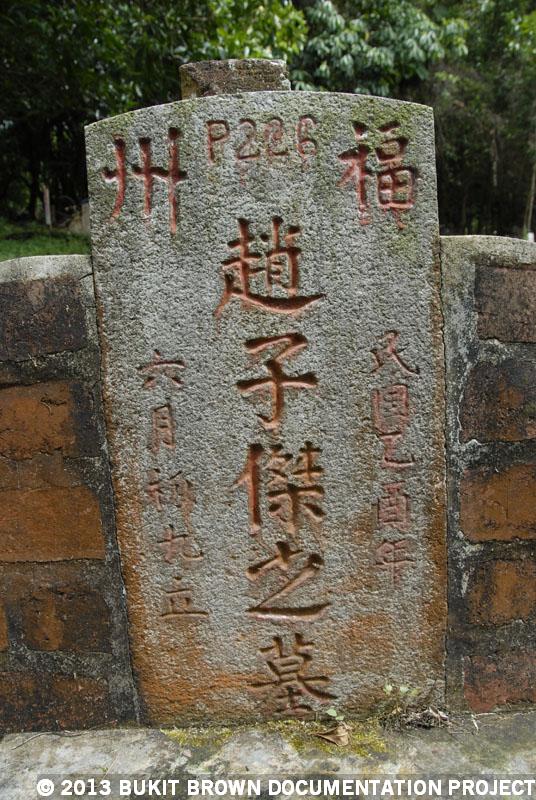 P226
福州
民国乙酉年
趙子傑之墓
六月初九立
© 2013 BUKIT BROWN DOCUMENTATION PROJECT